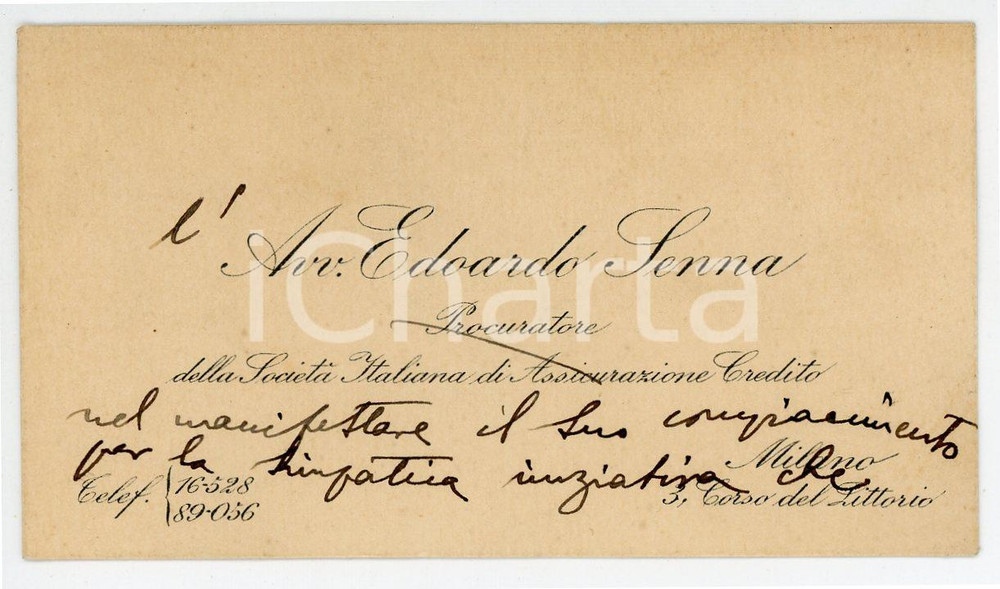 l'
Avv. Edoardo Senna
Procuratore
della Società Italiana di Assicurazione Credito
nel manifestare il suo compiacimento
per la simpatica iniziativa che
Milano
Telef. 16-528
89-056
3, Corso del Littorio
ICharta